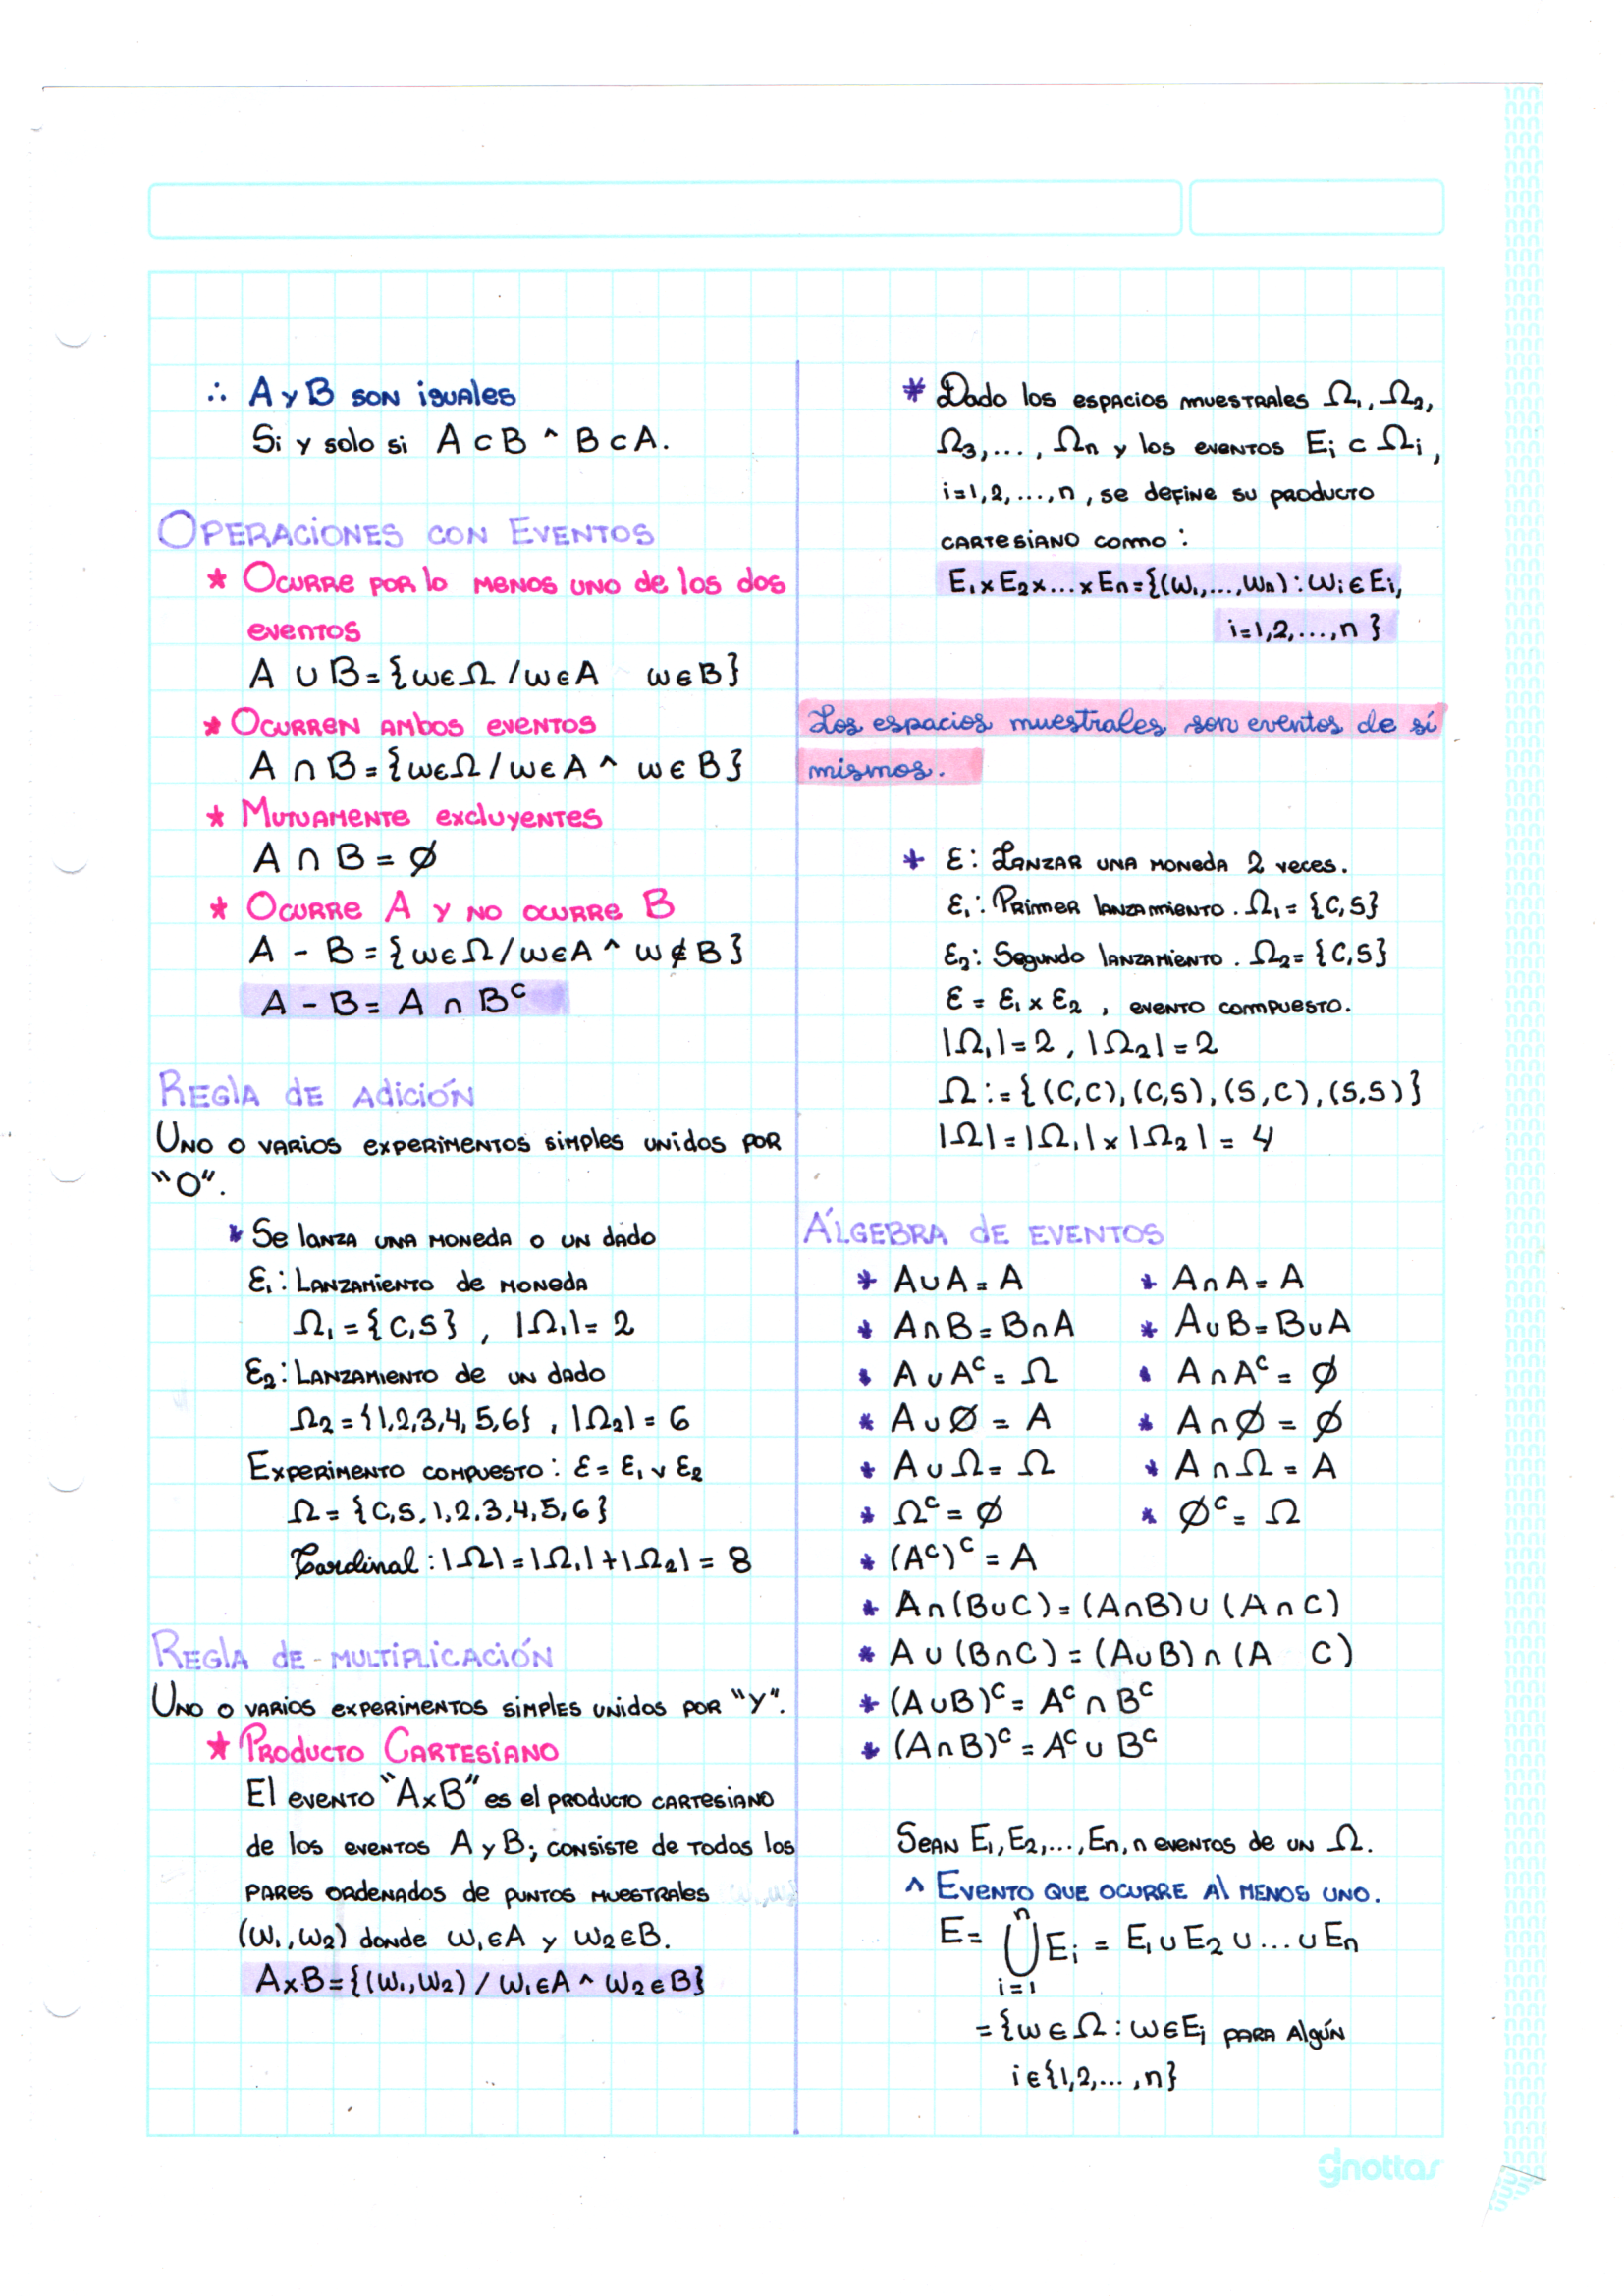 ∴ A y B son iguales
Si y solo si A ⊂ B ^ B ⊂ A.
Operaciones con Eventos
* Ocurre por lo menos uno de los dos
eventos
A ∪ B = {ω∈Ω / ω∈A   ω∈B}
* Ocurren ambos eventos
A ∩ B = {ω∈Ω / ω∈A ^ ω∈B}
* Mutuamente excluyentes
A ∩ B = ∅
* Ocurre A y no ocurre B
A - B = {ω∈Ω / ω∈A ^ ω∉B}
A - B = A ∩ Bᶜ
Regla de adición
Uno o varios experimentos simples unidos por
"O".
* Se lanza una moneda o un dado
Ɛ₁: Lanzamiento de moneda
Ω₁ = {C,S} , |Ω₁| = 2
Ɛ₂: Lanzamiento de un dado
Ω₂ = {1,2,3,4,5,6} , |Ω₂| = 6
Experimento compuesto: Ɛ = Ɛ₁ v Ɛ₂
Ω = {C,S,1,2,3,4,5,6}
Cardinal: |Ω| = |Ω₁| + |Ω₂| = 8
Regla de multiplicación
Uno o varios experimentos simples unidos por "Y".
* Producto Cartesiano
El evento "A×B" es el producto cartesiano
de los eventos A y B; consiste de todos los
pares ordenados de puntos muestrales
(ω₁, ω₂) donde ω₁∈A y ω₂∈B.
A×B = {(ω₁,ω₂) / ω₁∈A ^ ω₂∈B}
* Dado los espacios muestrales Ω₁, Ω₂,
Ω₃,..., Ωn y los eventos Ei ⊂ Ωi,
i=1,2,...,n, se define su producto
cartesiano como:
E₁ × E₂ × ... × En = {(ω₁,...,ωn) : ωi ∈ Ei,
i=1,2,...,n}
Los espacios muestrales son eventos de sí
mismos.
* Ɛ: Lanzar una moneda 2 veces.
Ɛ₁: Primer lanzamiento. Ω₁ = {C,S}
Ɛ₂: Segundo lanzamiento. Ω₂ = {C,S}
Ɛ = Ɛ₁ × Ɛ₂ , evento compuesto.
|Ω₁| = 2 , |Ω₂| = 2
Ω := {(C,C),(C,S),(S,C),(S,S)}
|Ω| = |Ω₁| × |Ω₂| = 4
Álgebra de eventos
* A∪A = A * A∩A = A
* A∩B = B∩A * A∪B = B∪A
* A∪Aᶜ = Ω * A∩Aᶜ = ∅
* A∪∅ = A * A∩∅ = ∅
* A∪Ω = Ω * A∩Ω = A
* Ωᶜ = ∅ * ∅ᶜ = Ω
* (Aᶜ)ᶜ = A
* A∩(B∪C) = (A∩B)∪(A∩C)
* A∪(B∩C) = (A∪B)∩(A   C)
* (A∪B)ᶜ = Aᶜ ∩ Bᶜ
* (A∩B)ᶜ = Aᶜ ∪ Bᶜ
Sean E₁, E₂,..., En, n eventos de un Ω.
^ Evento que ocurre al menos uno.
n
E = ⋃ Ei = E₁ ∪ E₂ ∪ ... ∪ En
i=1
= {ω∈Ω : ω∈Ei para algún
i∈{1,2,...,n}
gnottas